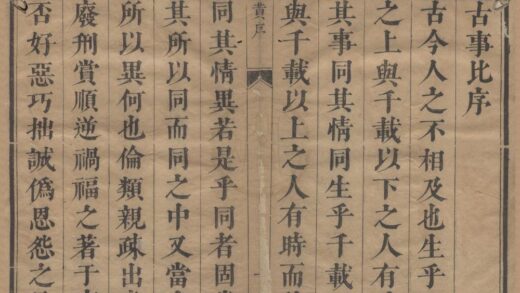 古事比序
古今人之不相及也生乎
之上與千載以下之人有
其事同其情同生乎千載
與千載以上之人有時而
同其情異若是乎同者固
其所以同而同之中又當
所以異何也倫類親疎出
廢刑賞順逆禍福之著于
否好惡巧拙誠僞恩怨之